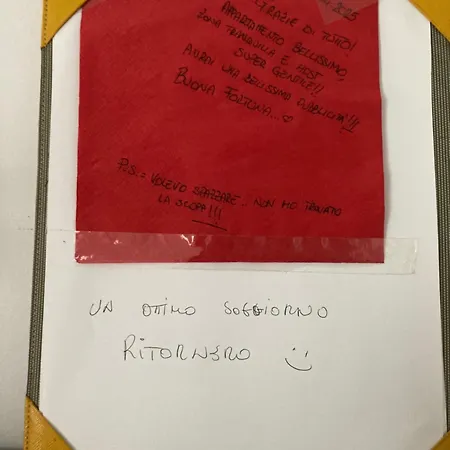 2025
GRAZIE DI TUTTO!
APPARTAMENTO BELLISSIMO,
ZONA TRANQUILLA E HOST
SUPER GENTILE!!
AVRAI UNA BELLISSIMA PUBBLICITÀ!!!
BUONA FORTUNA...
P.S.= VOLEVO SPAZZARE.. NON HO TROVATO
LA SCOPA!!!
UN OTTIMO SOGGIORNO
RITORNERO :)